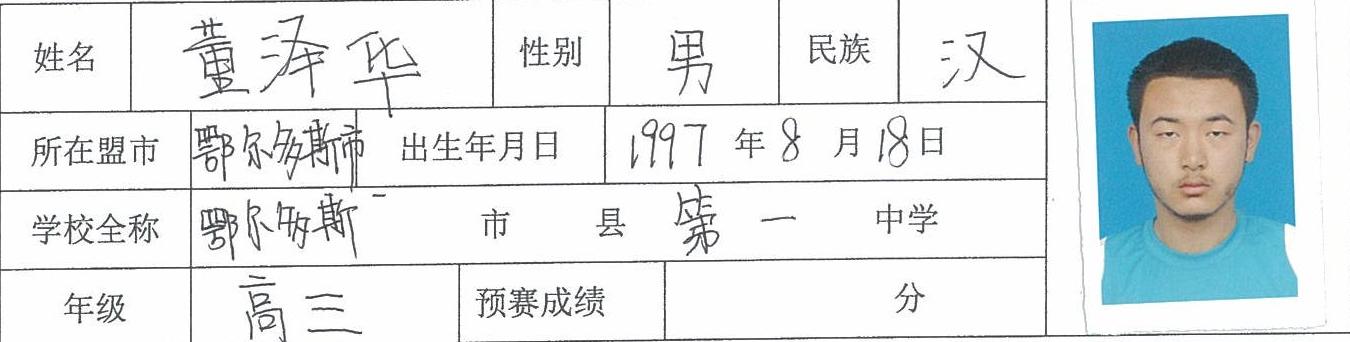 姓名 董泽华 性别 男 民族 汉
所在盟市 鄂尔多斯市 出生年月日 1997 年 8 月 18 日
学校全称 鄂尔多斯 市 县 第一 中学
年级 高三 预赛成绩 分